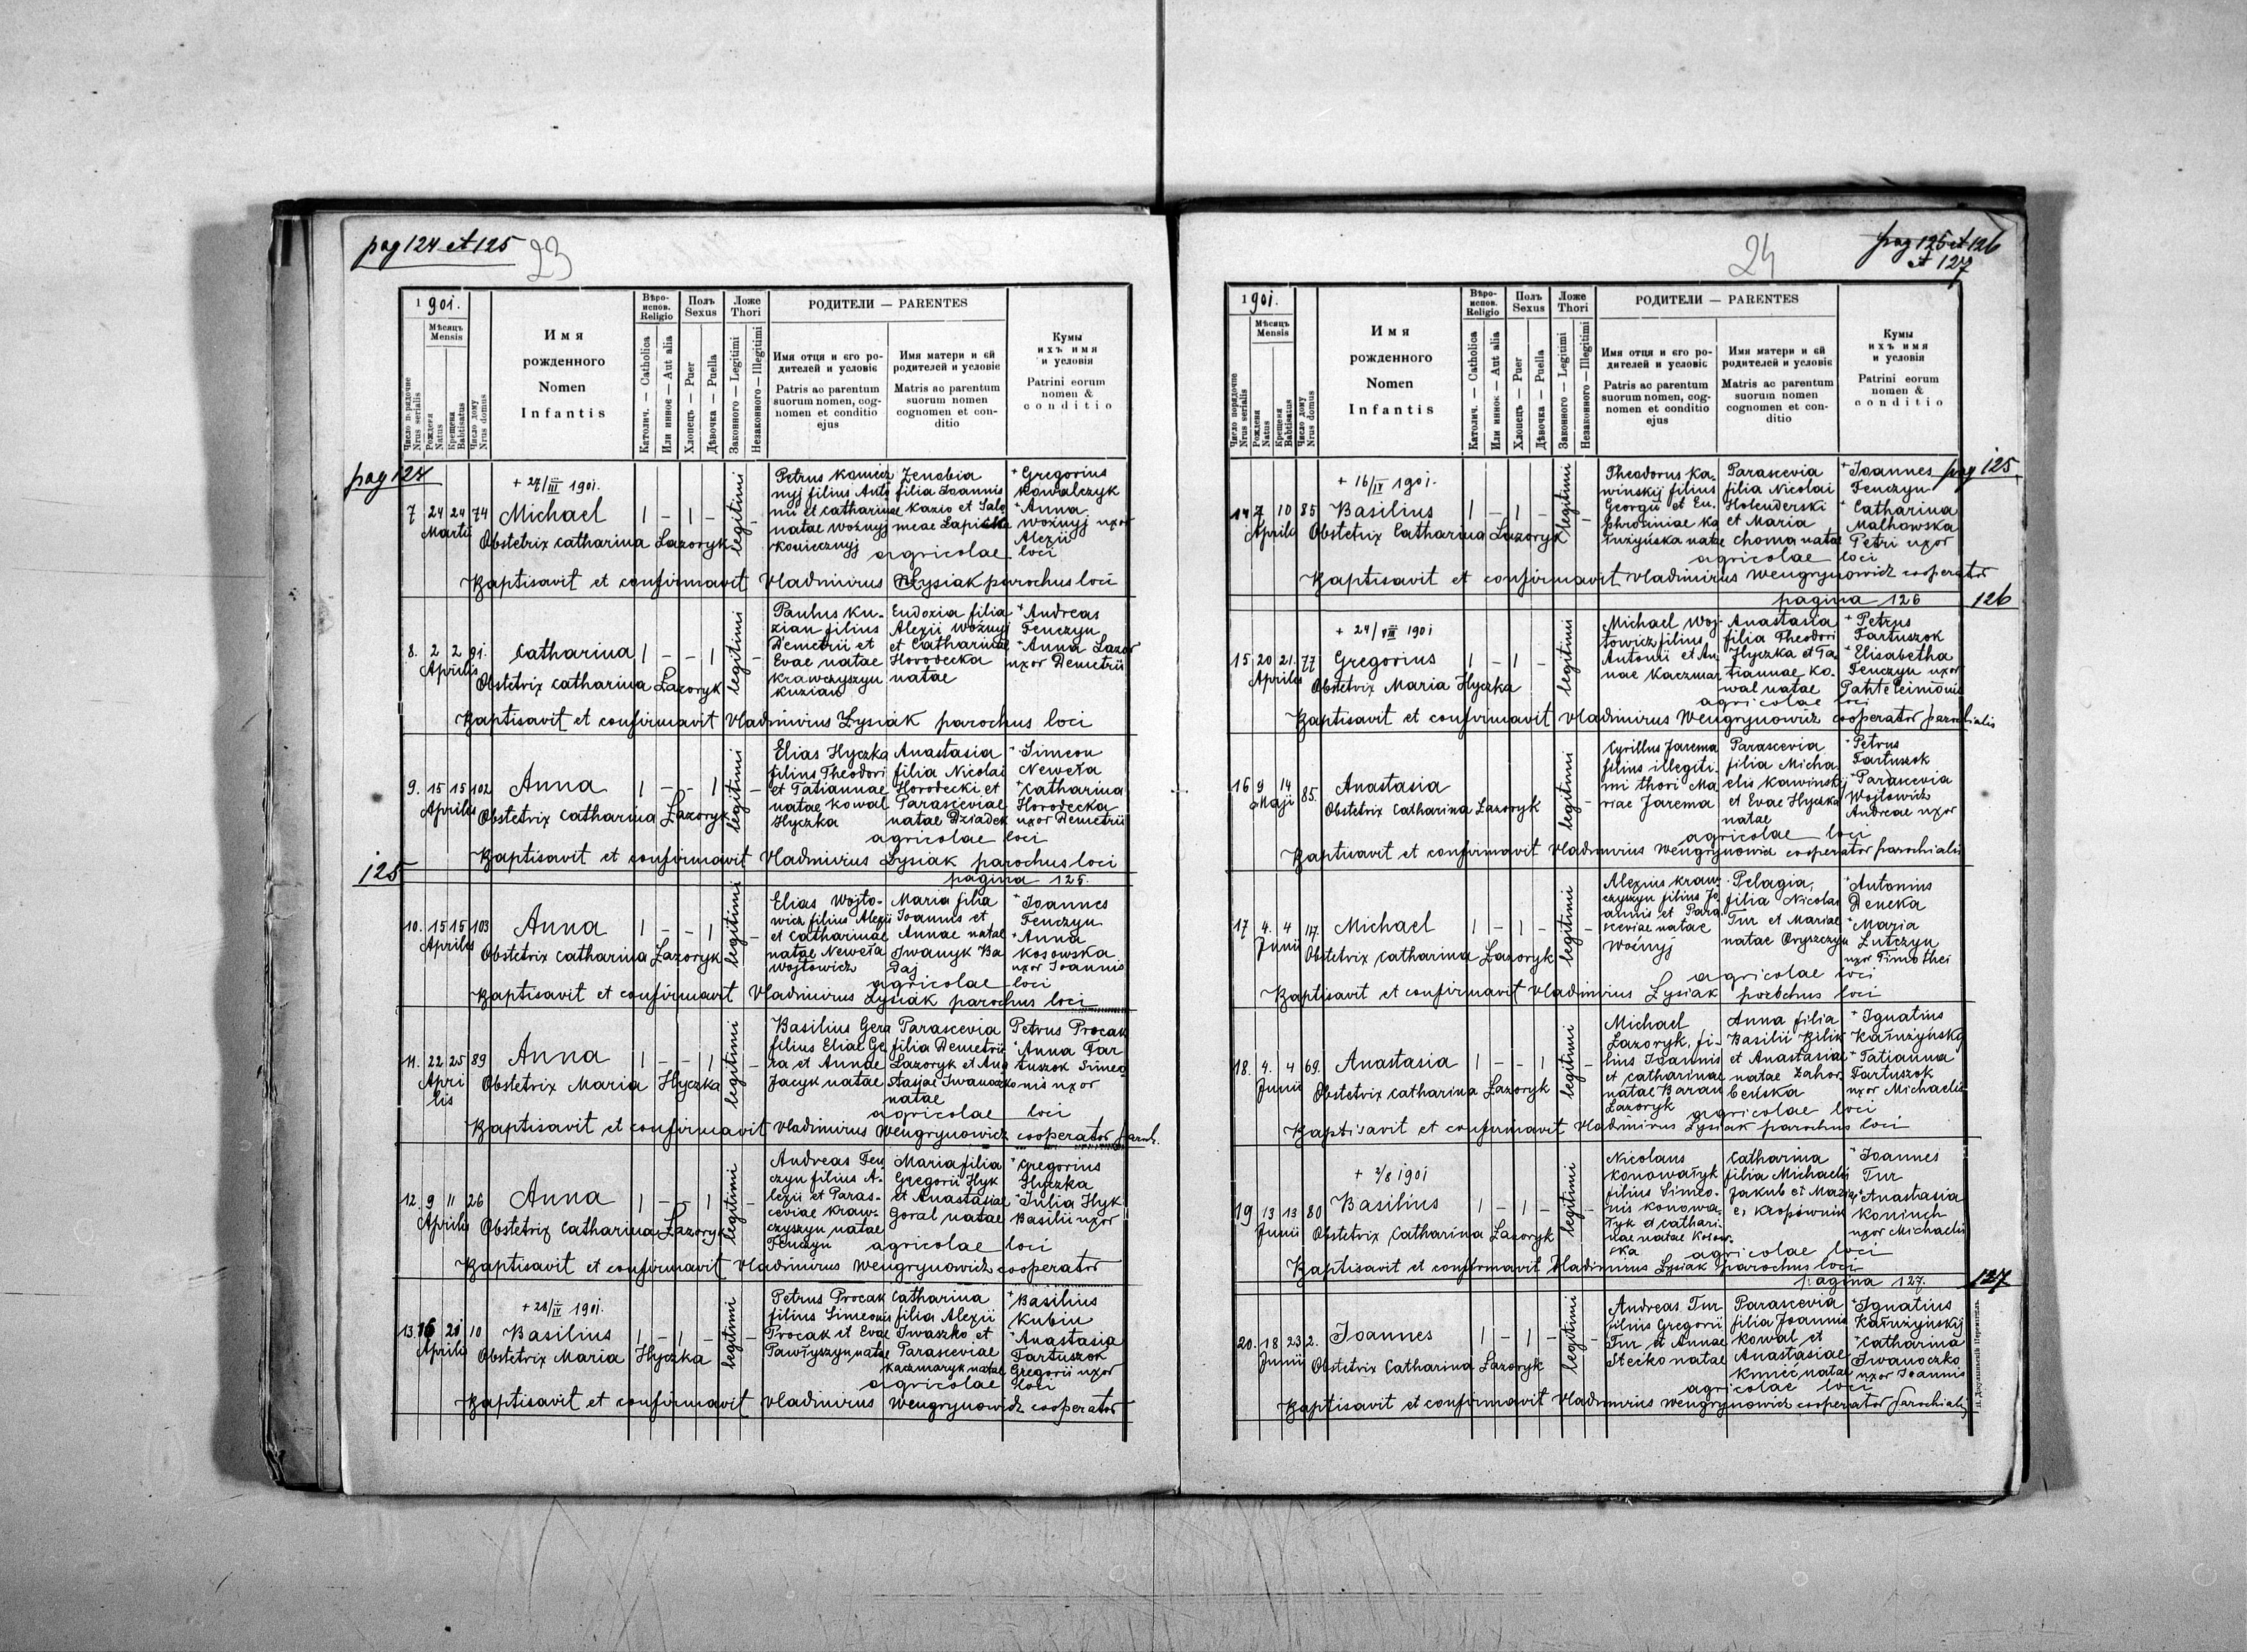 pag 124 et 125
23
1901.
Мѣсяцъ
Mensis
Число порядочне
Nrus serialis
Рожденя
Natus
Крещеня
Babtisatus
Число дому
Nrus domus
Имя
рожденного
Nomen
Infantis
Вѣро-
испов.
Religio
Католич. — Catholica
Или инноє — Aut alia
Полъ
Sexus
Хлопець — Puer
Дѣвочка — Puella
Ложе
Thori
Законного — Legitimi
Незаконного — Illegitimi
РОДИТЕЛИ — PARENTES
Имя отця и єго ро-
дителей и условіє
Patris ac parentum
suorum nomen, cog-
nomen et conditio
ejus
Имя матери и єй
родителей и условіє
Matris ac parentum
suorum nomen
cognomen et con-
ditio
Кумы
ихъ имя
и условія
Patrini eorum
nomen &
conditio
pag 124
+ 27/III 1901.
7 24 24 74 Michael 1 – 1 – legitimi –
Martii
Obstetrix Catharina Lazoryk
Petrus Koniecz
nyj filius Anto
nii et Catharinae
natae Woźnyj
Koniecznyj
Zenobia
filia Joannis
Kazio et Salo
meae Lapicka
+ Gregorius
Kowalczyk
+ Anna
Woźnyj uxor
Alexii
agricolae loci
Baptisavit et confirmavit Vladimirus Łysiak parochus loci
8. 2 2 91. Catharina 1 – – 1 legitimi –
Aprilis
Obstetrix Catharina Lazoryk
Paulus Ku-
zian filius
Demetrii et
Evae natae
Krawczyszyn
Kuzian
Eudoxia filia
Alexii Woźnyj
et Catharinae
Horodecka
natae
+ Andreas
Fenczyn
+ Anna Lazor
uxor Demetrii
Baptisavit et confirmavit Vladimirus Łysiak parochus loci
9. 15 15 102 Anna 1 – – 1 legitimi –
Aprilis
Obstetrix Catharina Lazoryk
Elias Hyczka
filius Theodori
et Tatiannae
natae Kowal
Hyczka
Anastasia
filia Nicolai
Horodecki et
Parasceviae
natae Dziadek
+ Simeon
Neweła
+ Catharina
Horodecka
uxor Demetrii
agricolae loci
Baptisavit et confirmavit Vladimirus Łysiak parochus loci
125
pagina 125.
10. 15 15 103 Anna 1 – – 1 legitimi –
Aprilis
Obstetrix Catharina Lazoryk
Elias Wojto-
wicz filius Alexii
et Catharinae
natae Neweła
Wojtowicz
Maria filia
Joannis et
Annae natae
Iwanyk Ba
Daj
+ Joannes
Fenczyn
+ Anna
Kosowska
uxor Joannis
agricolae loci
Baptisavit et confirmavit Vladimirus Łysiak parochus loci
11. 22 25 89 Anna 1 – – 1 legitimi –
Apri
lis
Obstetrix Maria Hyczka
Basilius Gera
filius Eliae Ge
ra et Annae
Jacyk natae
Parascevia
filia Demetrii
Lazoryk et Ana
stasjae Iwanoczko
natae
Petrus Procak
+ Anna Tar
tuszok Simeo
nis uxor
agricolae loci
Baptisavit et confirmavit Vladimirus Wengrynowicz cooperator paroch.
12. 9 11 26 Anna 1 – – 1 legitimi –
Aprilis
Obstetrix Catharina Lazoryk
Andreas Fen
czyn filius A-
lexii et Paras-
ceviae Kraw-
czyszyn natae
Fenczyn
Maria filia
Gregorii Hyk
et Anastasiae
Goral natae
+ Gregorius
Hyczka
+ Julia Hyk
Basilii uxor
agricolae loci
Baptisavit et confirmavit Vladimirus Wengrynowicz cooperator
+ 28/IV 1901.
13. 16 21 10 Basilius 1 – 1 – legitimi –
Aprilis
Obstetrix Maria Hyczka
Petrus Procak
filius Simeonis
Procak et Evae
Pawłyszyn natae
Catharina
filia Alexii
Iwaszko et
Parasceviae
Kaczmaryk natae
+ Basilius
Kubin
+ Anastasia
Tartuszok
Gregorii uxor
agricolae loci
Baptisavit et confirmavit Vladimirus Wengrynowicz cooperator
24
pag 125 et 126
et 127
1901.
Мѣсяцъ
Mensis
Число порядочне
Nrus serialis
Рожденя
Natus
Крещеня
Babtisatus
Число дому
Nrus domus
Имя
рожденного
Nomen
Infantis
Вѣро-
испов.
Religio
Католич. — Catholica
Или инноє — Aut alia
Полъ
Sexus
Хлопець — Puer
Дѣвочка — Puella
Ложе
Thori
Законного — Legitimi
Незаконного — Illegitimi
РОДИТЕЛИ — PARENTES
Имя отця и єго ро-
дителей и условіє
Patris ac parentum
suorum nomen, cog-
nomen et conditio
ejus
Имя матери и єй
родителей и условіє
Matris ac parentum
suorum nomen
cognomen et con-
ditio
Кумы
ихъ имя
и условія
Patrini eorum
nomen &
conditio
pag 125
+ 16/IV 1901.
14 7 10 85 Basilius 1 – 1 – legitimi –
Aprilis
Obstetrix Catharina Lazoryk
Theodorus Ka-
winskij filius
Georgii et Eu-
phrosiniae Ka
łużyńska natae
Parascevia
filia Nicolai
Holenderski
et Maria
Choma natae
+ Joannes
Fenczyn
+ Catharina
Malhowska
Petri uxor
agricolae loci
Baptisavit et confirmavit Vladimirus Wengrynowicz cooperator
pagina 126
126
+ 24/VIII 1901
15 20 21. 77 Gregorius 1 – 1 – legitimi –
Aprilis
Obstetrix Maria Hyczka
Michael Woj-
towicz filius
Antonii et An-
nae Kaczmar
Anastasia
filia Theodori
Hyczka et Ta-
tiannae Ko-
wal natae
+ Petrus
Tartuszok
+ Elisabetha
Fenczyn uxor
Panteleimonis
agricolae loci
Baptisavit et confirmavit Vladimirus Wengrynowicz cooperator parochialis
16 9 14 85. Anastasia legitimi –
Maji
Obstetrix Catharina Lazoryk
Cyrillus Jarema
filius illegiti-
mi thori Ma-
riae Jarema
Parascevia
filia Micha
elis Kawinskij
et Evae Hyczka
natae
+ Petrus
Tartuszok
+ Parascevia
Wojtowicz
Andreae uxor
agricolae loci
Baptisavit et confirmavit Vladimirus Wengrynowicz cooperator parochialis
17 4. 4 117. Michael 1 – 1 – legitimi –
Junii
Obstetrix Catharina Lazoryk
Alexius Kraw-
czyszyn filius Jo
annis et Para
sceviae natae
Woźnyj
Pelagia,
filia Nicolai
Tur et Mariae
natae Oryszczyn
+ Antonius
Deneka
+ Maria
Lutczyn
uxor Timothei
agricolae loci
Baptisavit et confirmavit Vladimirus Łysiak parochus loci
18. 4. 4 69. Anastasia 1 – – 1 legitimi –
Junii
Obstetrix Catharina Lazoryk
Michael
Lazoryk, fi-
lius Joannis
et Catharinae
natae Baran
Lazoryk
Anna filia
Basilii Bilik
et Anastasiae
natae Zahor
beńska
+ Ignatius
Kałużyński
+ Tatianna
Tartuszok
uxor Michaelis
agricolae loci
Baptisavit et confirmavit Vladimirus Łysiak parochus loci
+ 2/8 1901
19 13 13 80 Basilius 1 – 1 – legitimi –
Junii
Obstetrix Catharina Lazoryk
Nicolaus
Konowałyk
filius Simeo-
nis Konowa-
łyk et Cathari-
nae natae Kosow-
ska
Catharina
filia Michaelis
Jakub et Maria
e, Kropownik
+ Joannes
Tur
+ Anastasia
Koniuch
uxor Michaelis
agricolae loci
Baptisavit et confirmavit Vladimirus Łysiak parochus loci
pagina 127.
127
20. 18 23 2. Joannes 1 – 1 – legitimi –
Junii
Obstetrix Catharina Lazoryk
Andreas Tur
filius Gregorii
Tur et Annae
Stećko natae
Parascevia
filia Joannis
Kowal et
Anastasiae
Kmieć natae
+ Ignatius
Kałużyńskij
+ Catharina
Iwanoczko
uxor Joannis
agricolae loci
Baptisavit et confirmavit Vladimirus Wengrynowicz cooperator parochialis